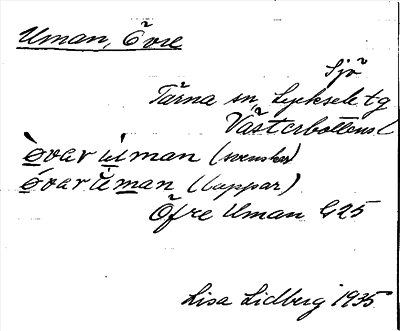 Uman, Övre
Sjö
Tärna sn, Lycksele tg
Västerbottens l
òvar ùman (svenskar)
óvar úman (lappar)
Öfre Uman G25
Lisa Lidberg 1935